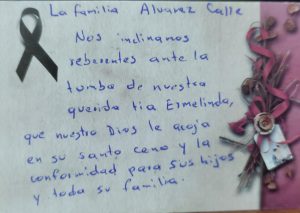 La familia Alvarez Calle
Nos inclinamos
reberentes ante la
tumba de nuestra
querida tia Ermelinda,
que nuestro Dios le acoja
en su santo ceno y la
conformidad para sus hijos
y toda su familia.